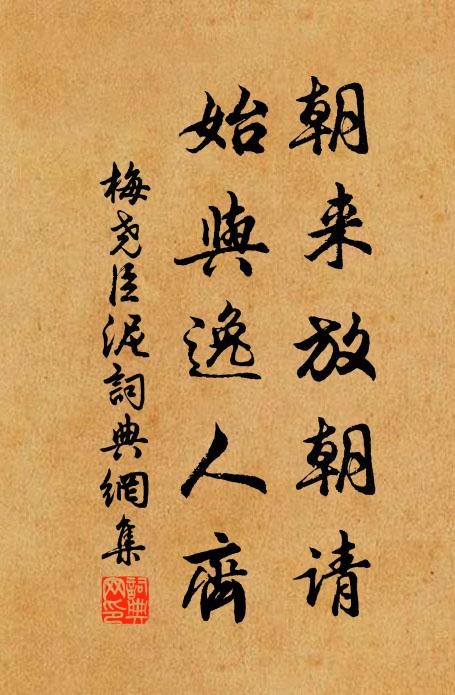 朝来放朝请
始與逸人齊
梅尧臣泥詞典網集
詞典網印